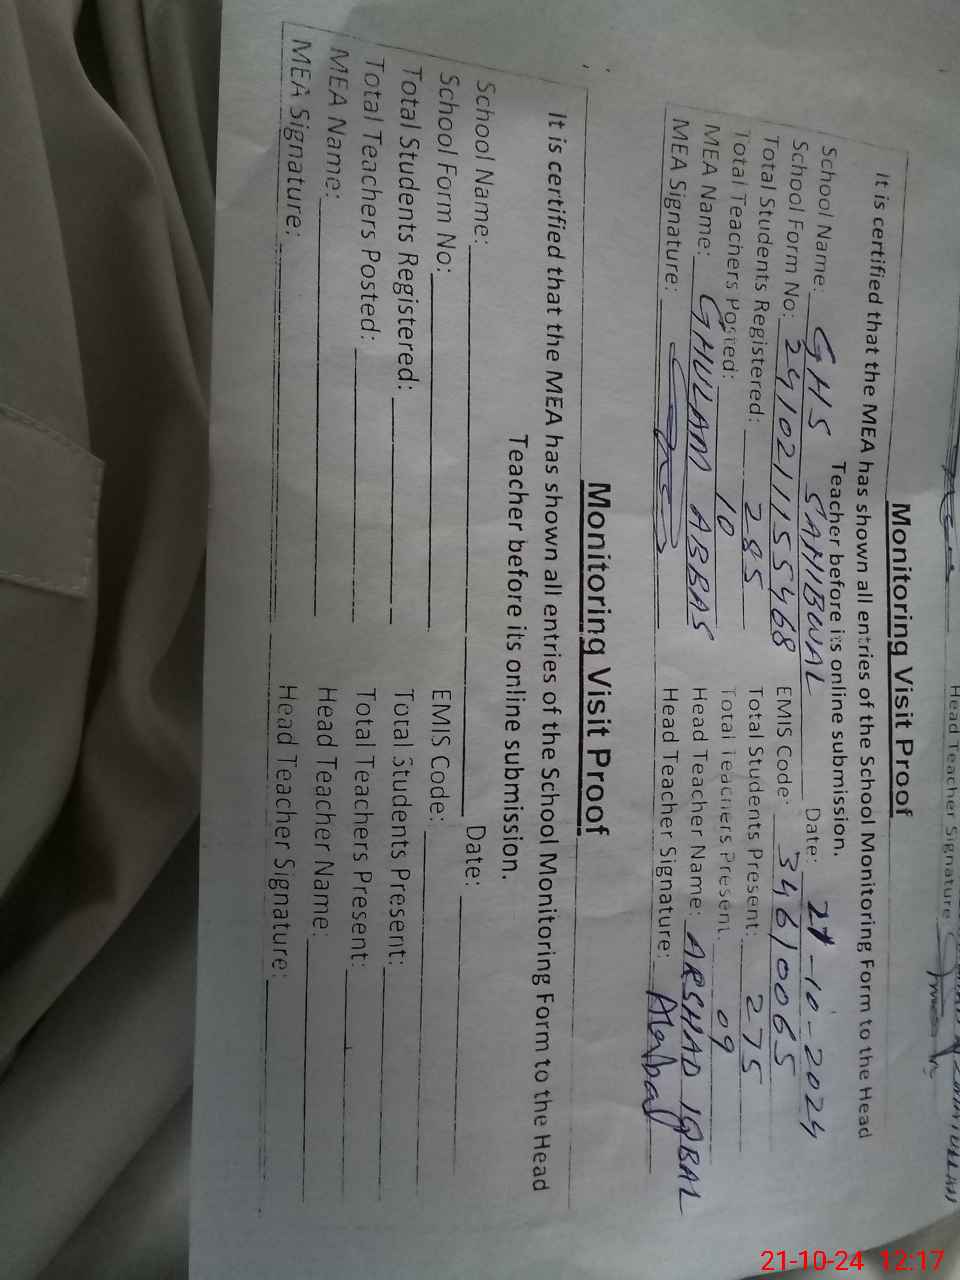 Head Teacher Signature
Monitoring Visit Proof
It is certified that the MEA has shown all entries of the School Monitoring Form to the Head
Teacher before its online submission.
School Name: GHS SAHIBWAL Date: 21-10-2024
School Form No: 2410211155468 EMIS Code: 34610065
Total Students Registered: 285 Total Students Present: 275
Total Teachers Posted: 10 Total Teachers Present: 09
MEA Name: GHULAM ABBAS Head Teacher Name: ARSHAD IQBAL
MEA Signature: Head Teacher Signature:
Monitoring Visit Proof
It is certified that the MEA has shown all entries of the School Monitoring Form to the Head
Teacher before its online submission.
School Name: Date:
School Form No: EMIS Code:
Total Students Registered: Total Students Present:
Total Teachers Posted: Total Teachers Present:
MEA Name: Head Teacher Name:
MEA Signature: Head Teacher Signature:
21-10-24 12:17